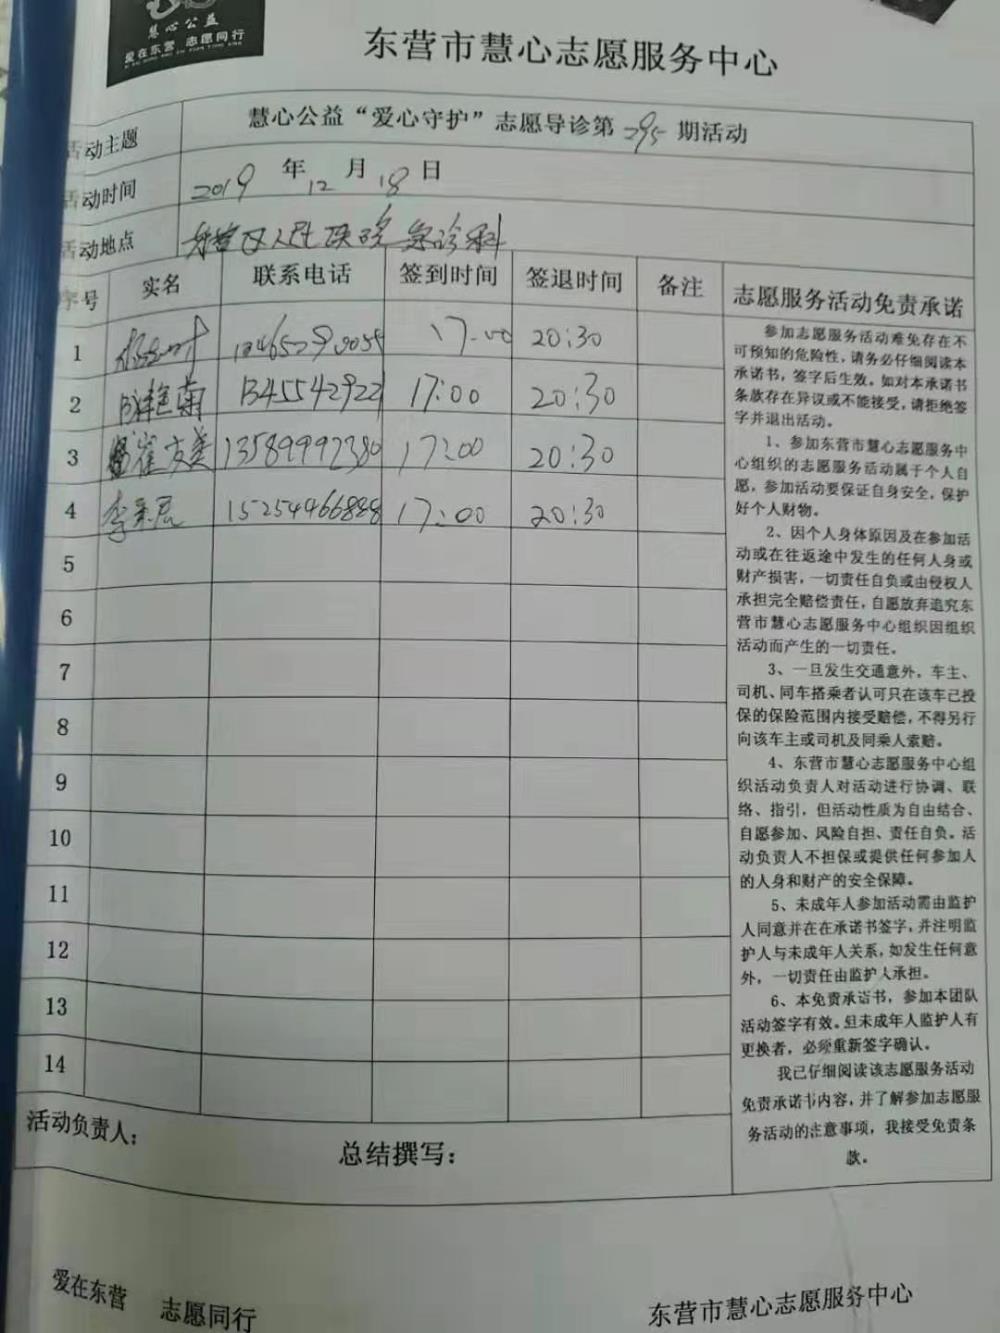 慧心公益
爱在东营 志愿同行
东营市慧心志愿服务中心
活动主题 慧心公益“爱心守护”志愿导诊第 295 期活动
活动时间 2019 年 12 月 18 日
活动地点 东营区人民医院急诊科
序号 实名 联系电话 签到时间 签退时间 备注 志愿服务活动免责承诺
1 17:00 20:30
2 13455429221 17:00 20:30
3 崔文美 13589992380 17:00 20:30
4 15254466888 17:00 20:30
5
6
7
8
9
10
11
12
13
14
参加志愿服务活动难免存在不
可预知的危险性，请务必仔细阅读本
承诺书，签字后生效。如对本承诺书
条款存在异议或不能接受，请拒绝签
字并退出活动。
1、参加东营市慧心志愿服务中
心组织的志愿服务活动属于个人自
愿，参加活动要保证自身安全，保护
好个人财物。
2、因个人身体原因及在参加活
动或在往返途中发生的任何人身或
财产损害，一切责任自负或由侵权人
承担完全赔偿责任，自愿放弃追究东
营市慧心志愿服务中心组织因组织
活动而产生的一切责任。
3、一旦发生交通意外，车主、
司机、同车搭乘者认可只在该车已投
保的保险范围内接受赔偿，不得另行
向该车主或司机及同乘人索赔。
4、东营市慧心志愿服务中心组
织活动负责人对活动进行协调、联
络、指引，但活动性质为自由结合、
自愿参加、风险自担、责任自负。活
动负责人不担保或提供任何参加人
的人身和财产的安全保障。
5、未成年人参加活动需由监护
人同意并在在承诺书签字，并注明监
护人与未成年人关系，如发生任何意
外，一切责任由监护人承担。
6、本免责承诺书，参加本团队
活动签字有效。但未成年人监护人有
更换者，必须重新签字确认。
我已仔细阅读该志愿服务活动
免责承诺书内容，并了解参加志愿服
务活动的注意事项，我接受免责条
款。
活动负责人： 总结撰写：
爱在东营 志愿同行 东营市慧心志愿服务中心